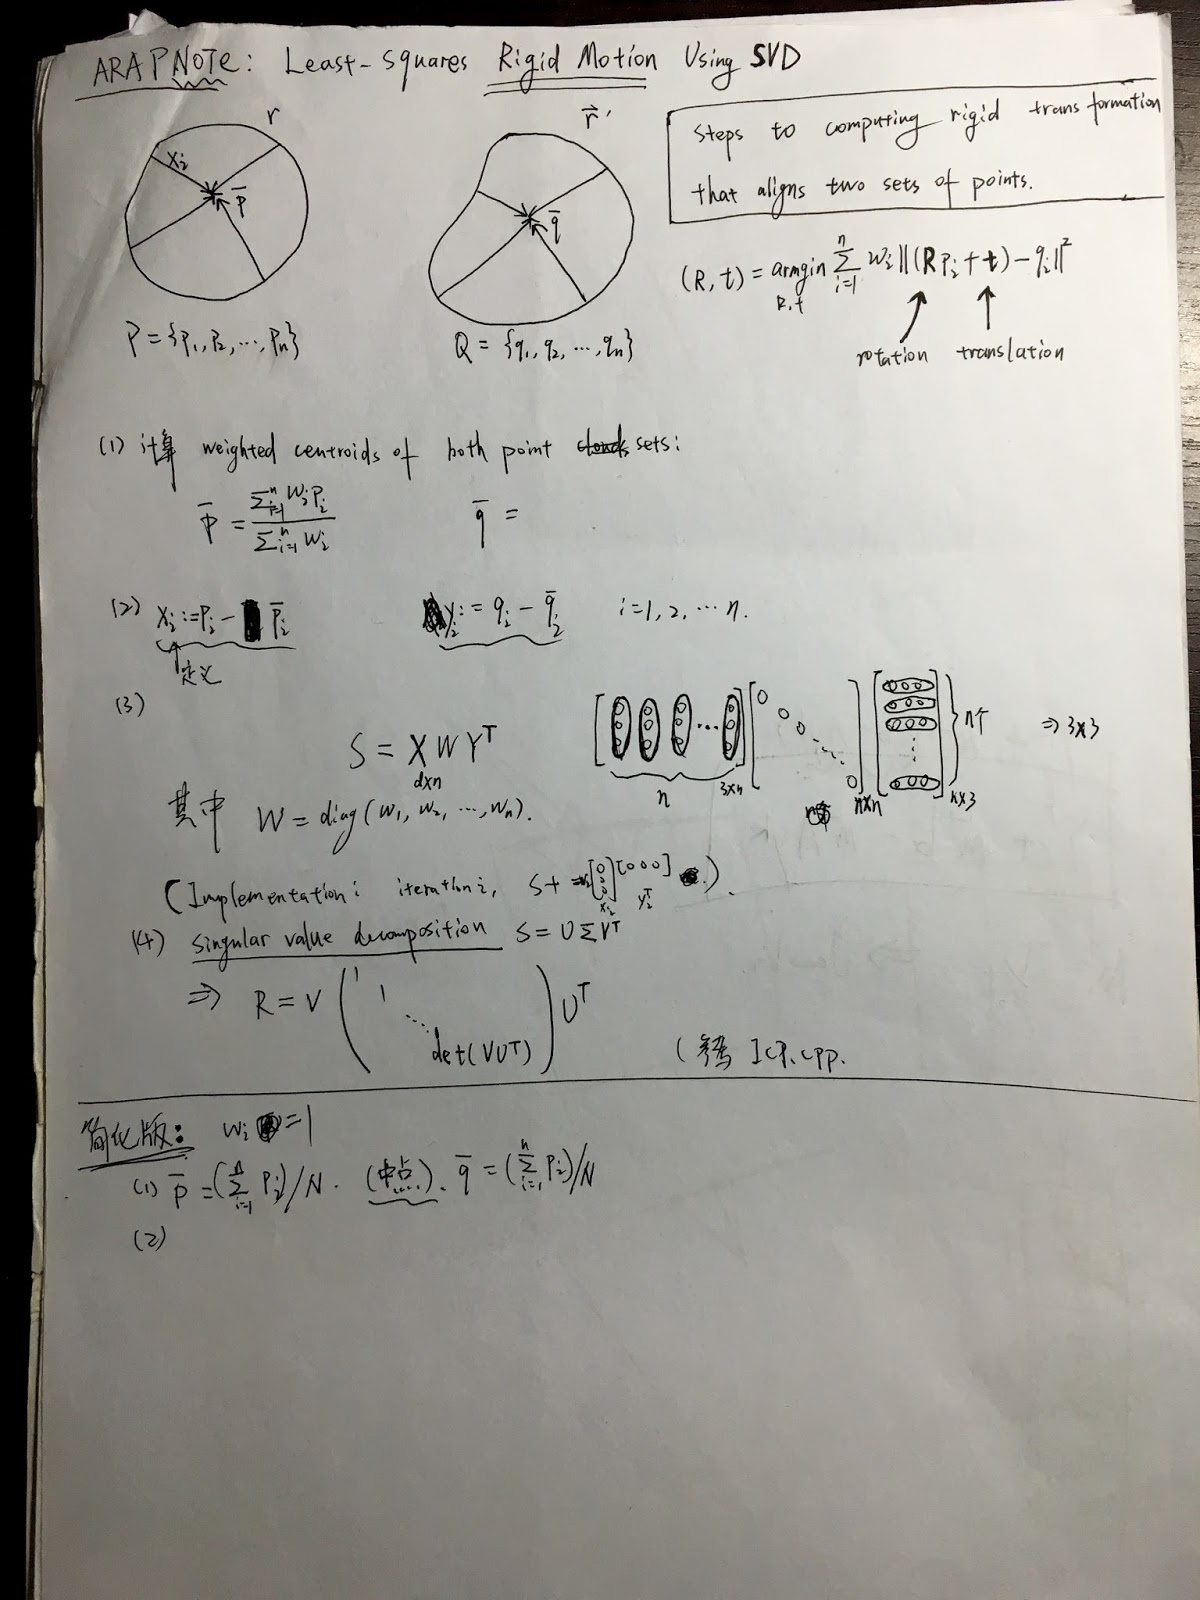 ARAP NOTE: Least-Squares Rigid Motion Using SVD
r
x_i
p̄
P = {p₁, p₂, ..., pₙ}
r⃗'
q̄
Q = {q₁, q₂, ..., qₙ}
Steps to computing rigid transformation
that aligns two sets of points.
(R, t) = armgin_{R,t} Σ_{i=1}^{n} w_i ||(R p_i + t) - q_i||²
rotation translation
(1) 计算 weighted centroids of both point sets:
p̄ = Σ_{i=1}^{n} w_i p_i / Σ_{i=1}^{n} w_i    q̄ =
(2) x_i := p_i - p̄_i    y_i := q_i - q̄_i    i = 1, 2, ... n.
定义
(3)
S = X W Yᵀ
d×n
n 3×n n×n n个 n×3 ⇒ 3×3
其中 W = diag(w₁, w₂, ..., wₙ).
(Implementation: iteration i, S+ = [0 0 0] [0 0 0] ).
x_i y_iᵀ
(4) singular value decomposition S = U Σ Vᵀ
⇒ R = V ( 1 1 ⋱ det(VUᵀ) ) Uᵀ
(参考 ICP.cpp.
简化版: w_i = 1
(1) p̄ = (Σ_{i=1}^{n} p_i)/N. (中点). q̄ = (Σ_{i=1}^{n} p_i)/N
(2)